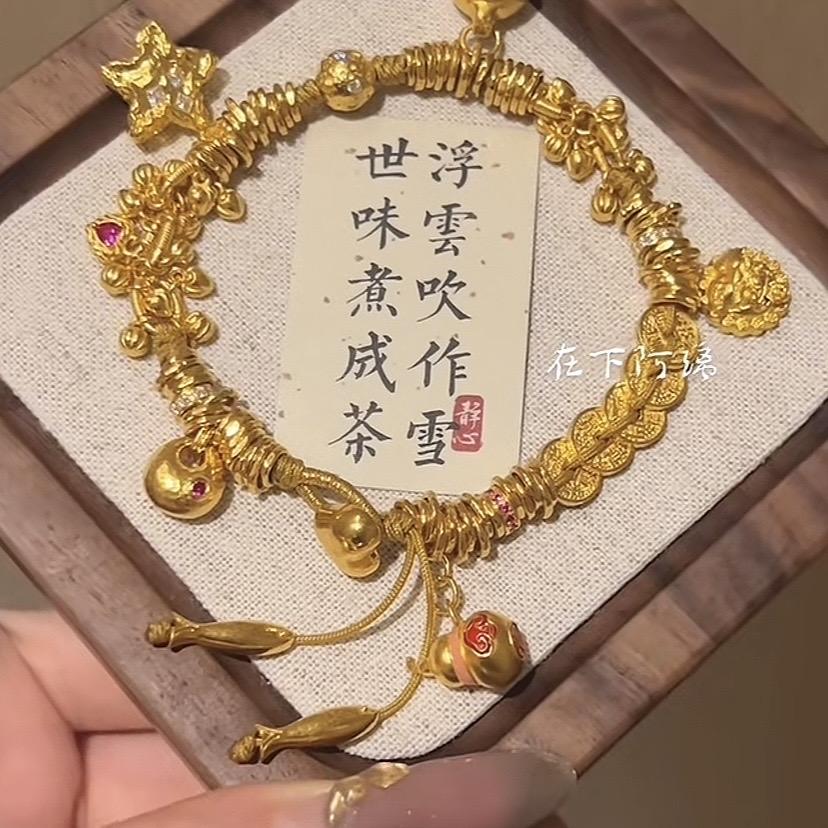 浮雲吹作雪
世味煮成茶
靜心
在下阿缡